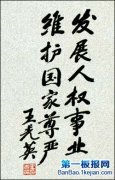 发展人权事业
维护国家尊严
王光英
第一板报网
BanBao.1kejian.com